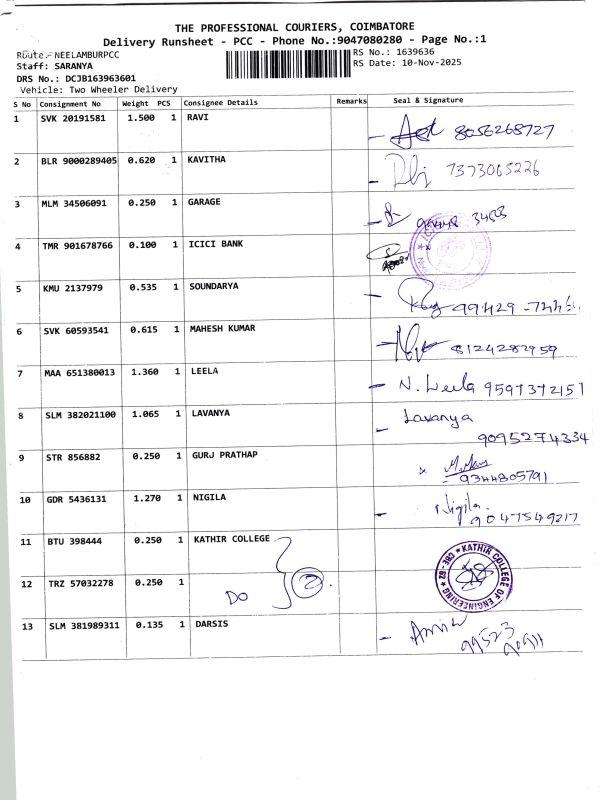 THE PROFESSIONAL COURIERS, COIMBATORE
Delivery Runsheet - PCC - Phone No.:9047080280 - Page No.:1
Route:- NEELAMBURPCC RS No.: 1639636
Staff: SARANYA RS Date: 10-Nov-2025
DRS No.: DCJB163963601
Vehicle: Two Wheeler Delivery
S No Consignment No Weight PCS Consignee Details Remarks Seal & Signature
1 SVK 20191581 1.500 1 RAVI 8056268727
2 BLR 9000289405 0.620 1 KAVITHA 7373065226
3 MLM 34506091 0.250 1 GARAGE
4 TMR 901678766 0.100 1 ICICI BANK
5 KMU 2137979 0.535 1 SOUNDARYA 99429
6 SVK 60593541 0.615 1 MAHESH KUMAR 8124282959
7 MAA 651380013 1.360 1 LEELA N. Leela 9597372157
8 SLM 382021100 1.065 1 LAVANYA Lavanya
9095274334
9 STR 856882 0.250 1 GURJ PRATHAP
9344805791
10 GDR 5436131 1.270 1 NIGILA Nigila
9047549217
11 BTU 398444 0.250 1 KATHIR COLLEGE
KATHIR COLLEGE OF ENGINEERING CBE - 62
12 TRZ 57032278 0.250 1 DO 2
13 SLM 381989311 0.135 1 DARSIS
99523